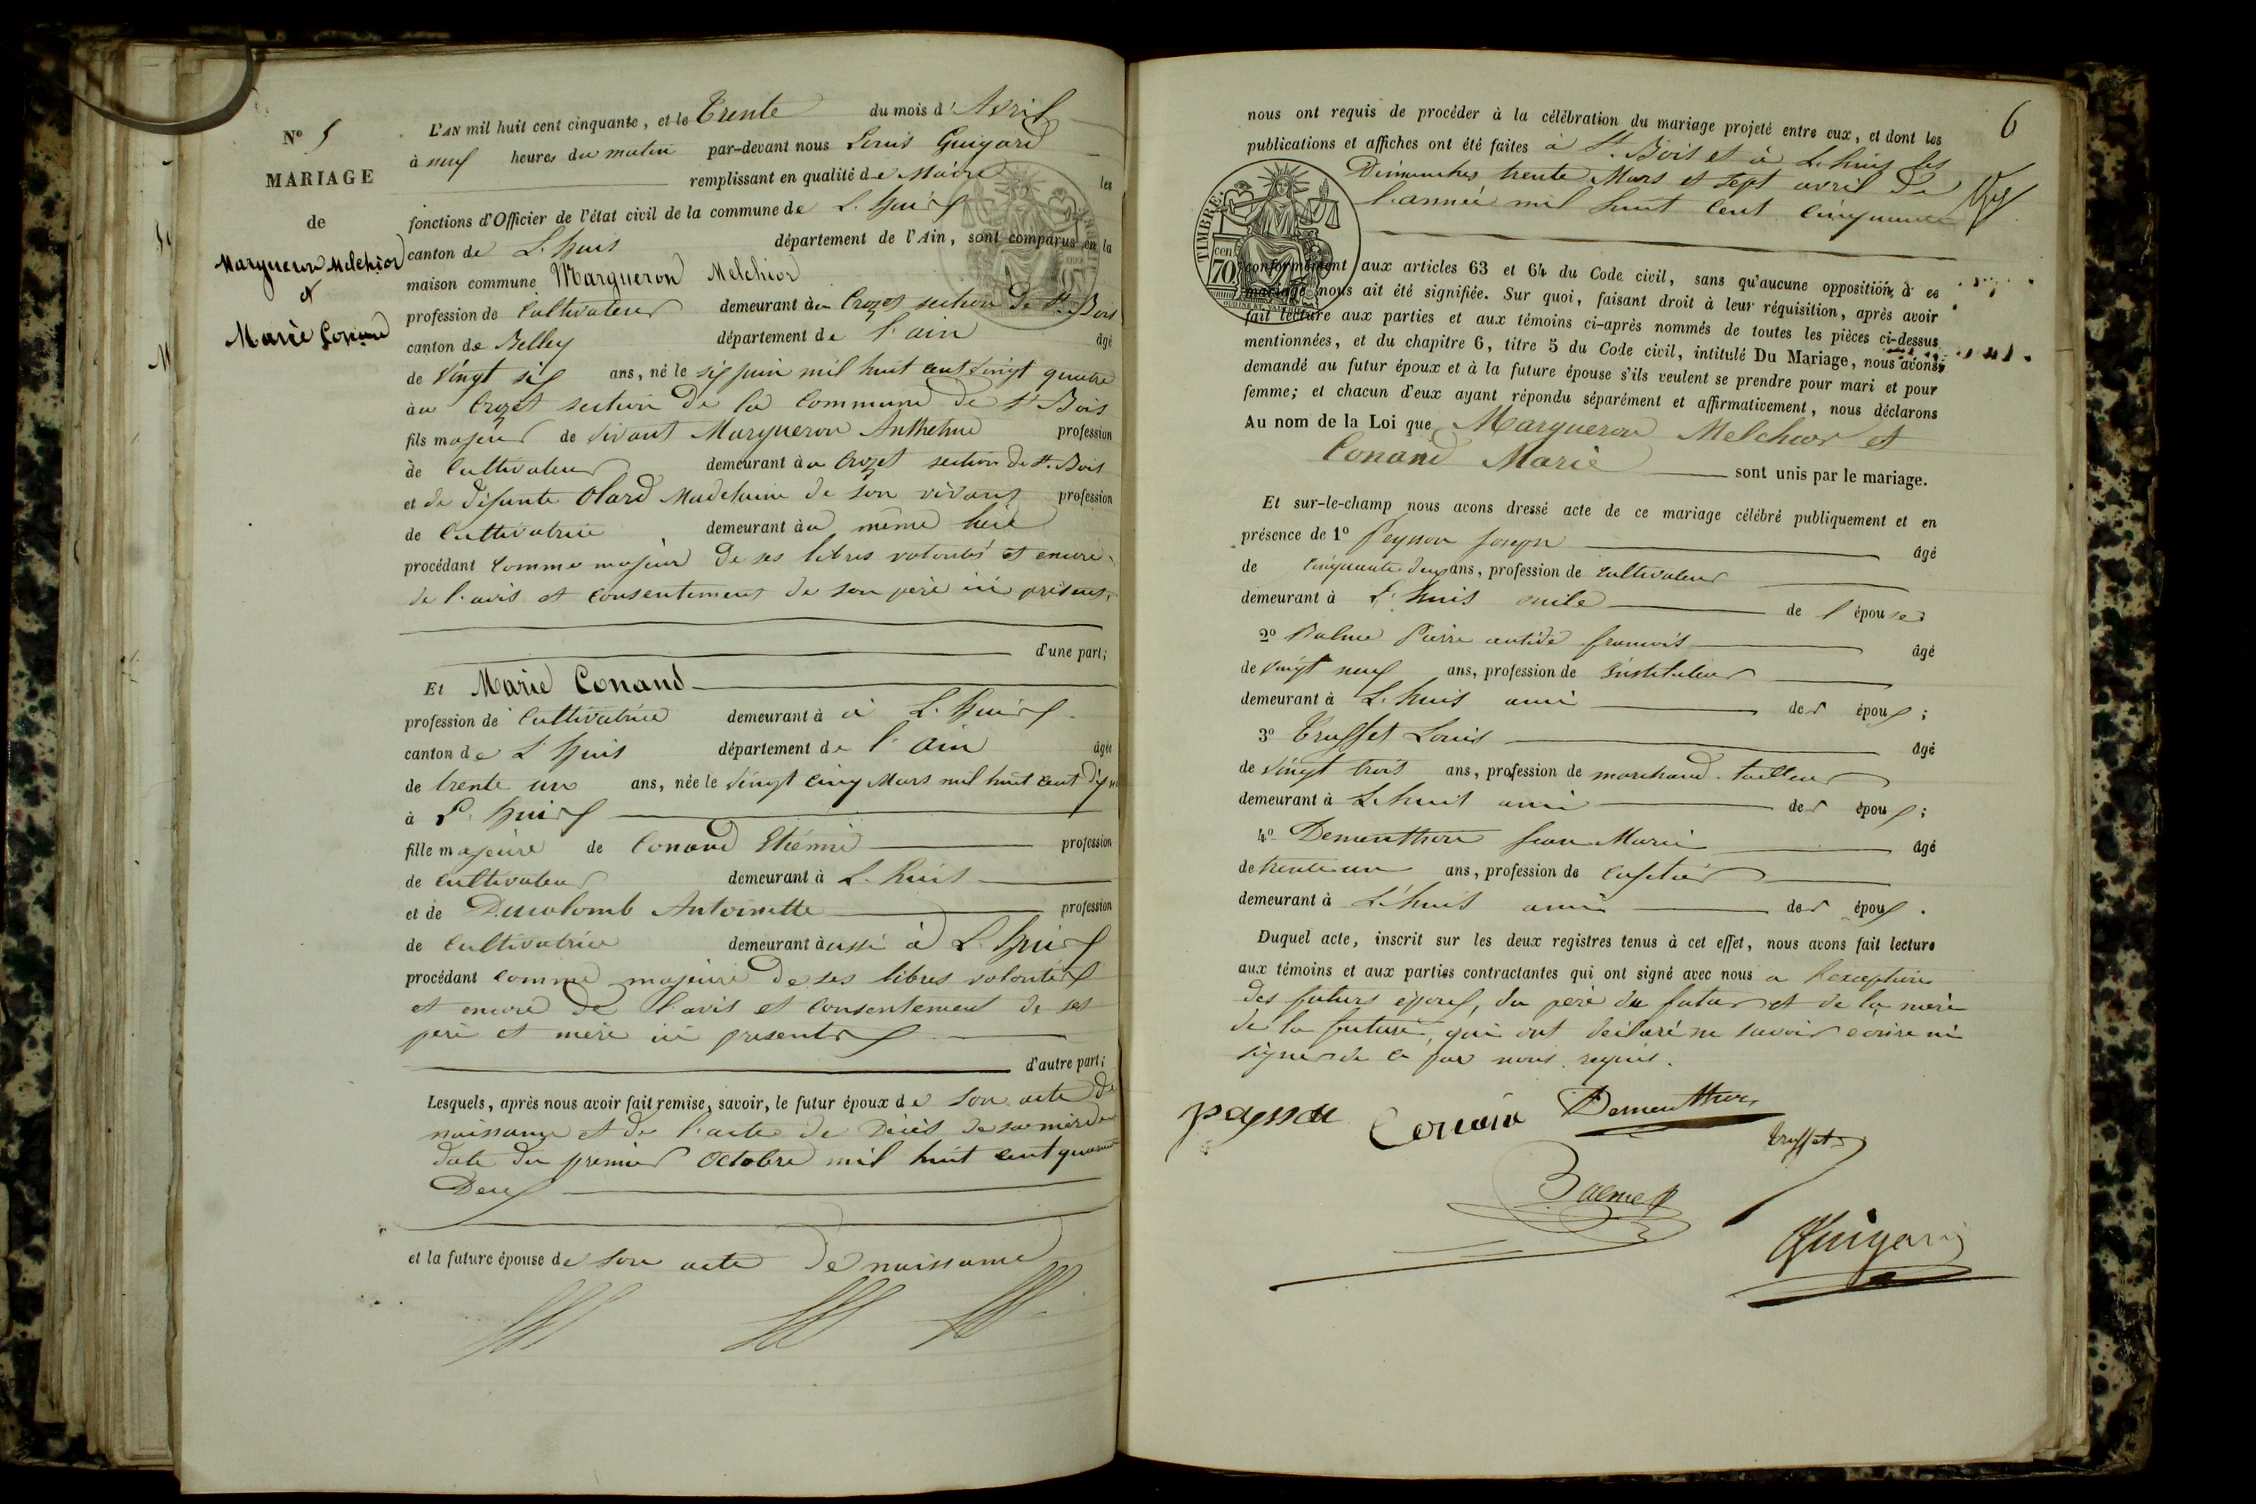 N° 5
MARIAGE
de
Margueron Melchior
et
Marie Conand
L'AN mil huit cent cinquante, et le Trente du mois d'Avril
à neuf heures du matin par-devant nous Louis Guigard
remplissant en qualité de Maire les
fonctions d'Officier de l'état civil de la commune de L'huis
canton de L'huis département de l'Ain, sont comparus en la
maison commune Margueron Melchior
profession de Cultivateur demeurant au Crozet section de St. Bois
canton de Belley département de l'ain âgé
de vingt six ans, né le six juin mil huit cent vingt quatre
au Crozet section de la Commune de St Bois
fils majeur de vivant Margueron Anthelme profession
de Cultivateur demeurant au Crozet section de St. Bois
et de défunte Olard Madelaine de son vivant profession
de Cultivatrice demeurant au même lieu
procédant comme majeur de ses libres volontés et encore
de l'avis et consentement de son père ici présent,
d'une part;
Et Marie Conand
profession de Cultivatrice demeurant à à L'huis
canton de L'huis département de l'Ain âgée
de trente un ans, née le vingt cinq Mars mil huit cent dix
à L'huis
fille majeure de Conand Etienne profession
de Cultivateur demeurant à L'huis
et de Ducolomb Antoinette profession
de Cultivatrice demeurant aussi à L'huis
procédant comme majeure de ses libres volontés
et encore de l'avis et consentement de ses
père et mère ici présents
d'autre part;
Lesquels, après nous avoir fait remise, savoir, le futur époux de son acte de
naissance et de l'acte de Décès de sa mère
date du premier Octobre mil huit cent quarante
Deux
et la future épouse de son acte de naissance
6
nous ont requis de procéder à la célébration du mariage projeté entre eux, et dont les
publications et affiches ont été faites à St. Bois et à L'huis les
Dimanches trente Mars et sept avril de
l'année mil huit cent cinquante
TIMBRE
cen
70
conformément aux articles 63 et 64 du Code civil, sans qu'aucune opposition à ce
mariage nous ait été signifiée. Sur quoi, faisant droit à leur réquisition, après avoir
fait lecture aux parties et aux témoins ci-après nommés de toutes les pièces ci-dessus
mentionnées, et du chapitre 6, titre 5 du Code civil, intitulé Du Mariage, nous avons
demandé au futur époux et à la future épouse s'ils veulent se prendre pour mari et pour
femme; et chacun d'eux ayant répondu séparément et affirmativement, nous déclarons
Au nom de la Loi que Margueron Melchior et
Conand Marie sont unis par le mariage.
Et sur-le-champ nous avons dressé acte de ce mariage célébré publiquement et en
présence de 1° Peysson Joseph âgé
de cinquante deux ans, profession de cultivateur
demeurant à L'huis oncle de l'épouse
2° Balme Pierre antide françois âgé
de vingt neuf ans, profession de instituteur
demeurant à L'huis ami des époux;
3° Truffet Louis âgé
de vingt trois ans, profession de marchand tailleur
demeurant à L'huis ami des époux;
4° Dementhon Jean Marie âgé
de trente un ans, profession de cafetier
demeurant à L'huis ami des époux.
Duquel acte, inscrit sur les deux registres tenus à cet effet, nous avons fait lecture
aux témoins et aux parties contractantes qui ont signé avec nous a l'exception
des futurs époux, du père du futur et de la mère
de la future, qui ont declaré ne savoir ecrire ni
signer de ce par nous requis.
Conand Dementhon
Truffet
Balme
Guigard